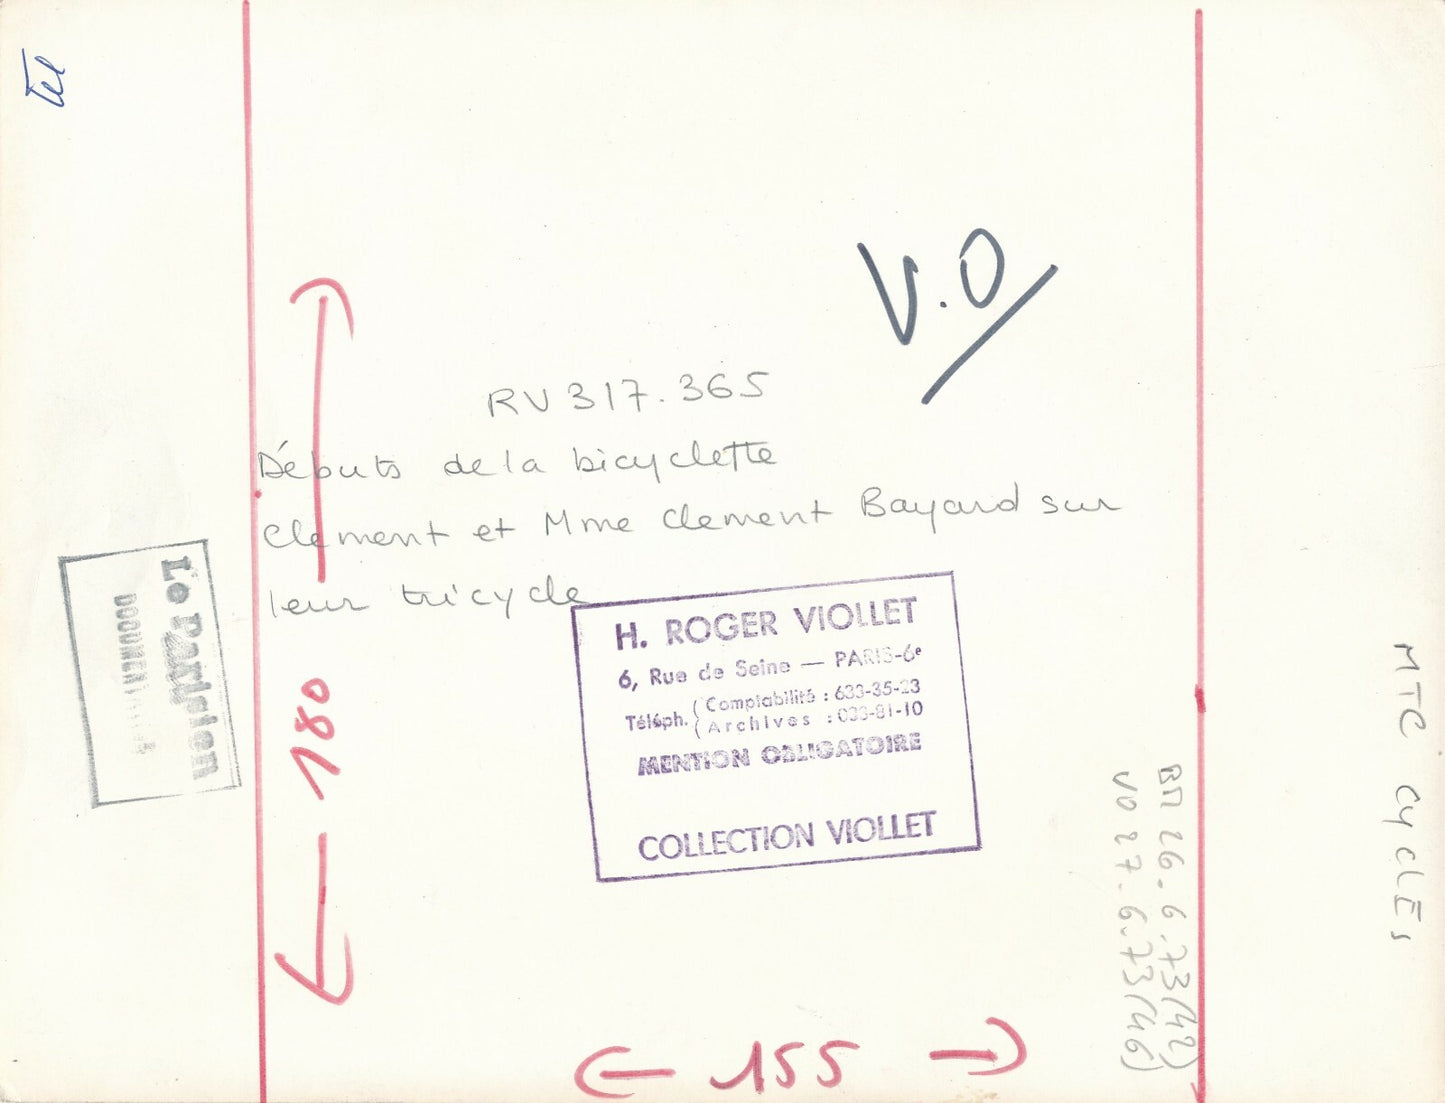 V.O
RV 317.365
Débuts de la bicyclette
Clement et Mme Clement Bayard sur
leur tricycle
H. ROGER VIOLLET
6, Rue de Seine — PARIS-6e
Téléph. Comptabilité : 633-35-23
Archives : 033-81-10
MENTION OBLIGATOIRE
COLLECTION VIOLLET
Le Parisien
180
155
MTC CYCLES
26.6.73 (42)
VO 27.6.73 (46)